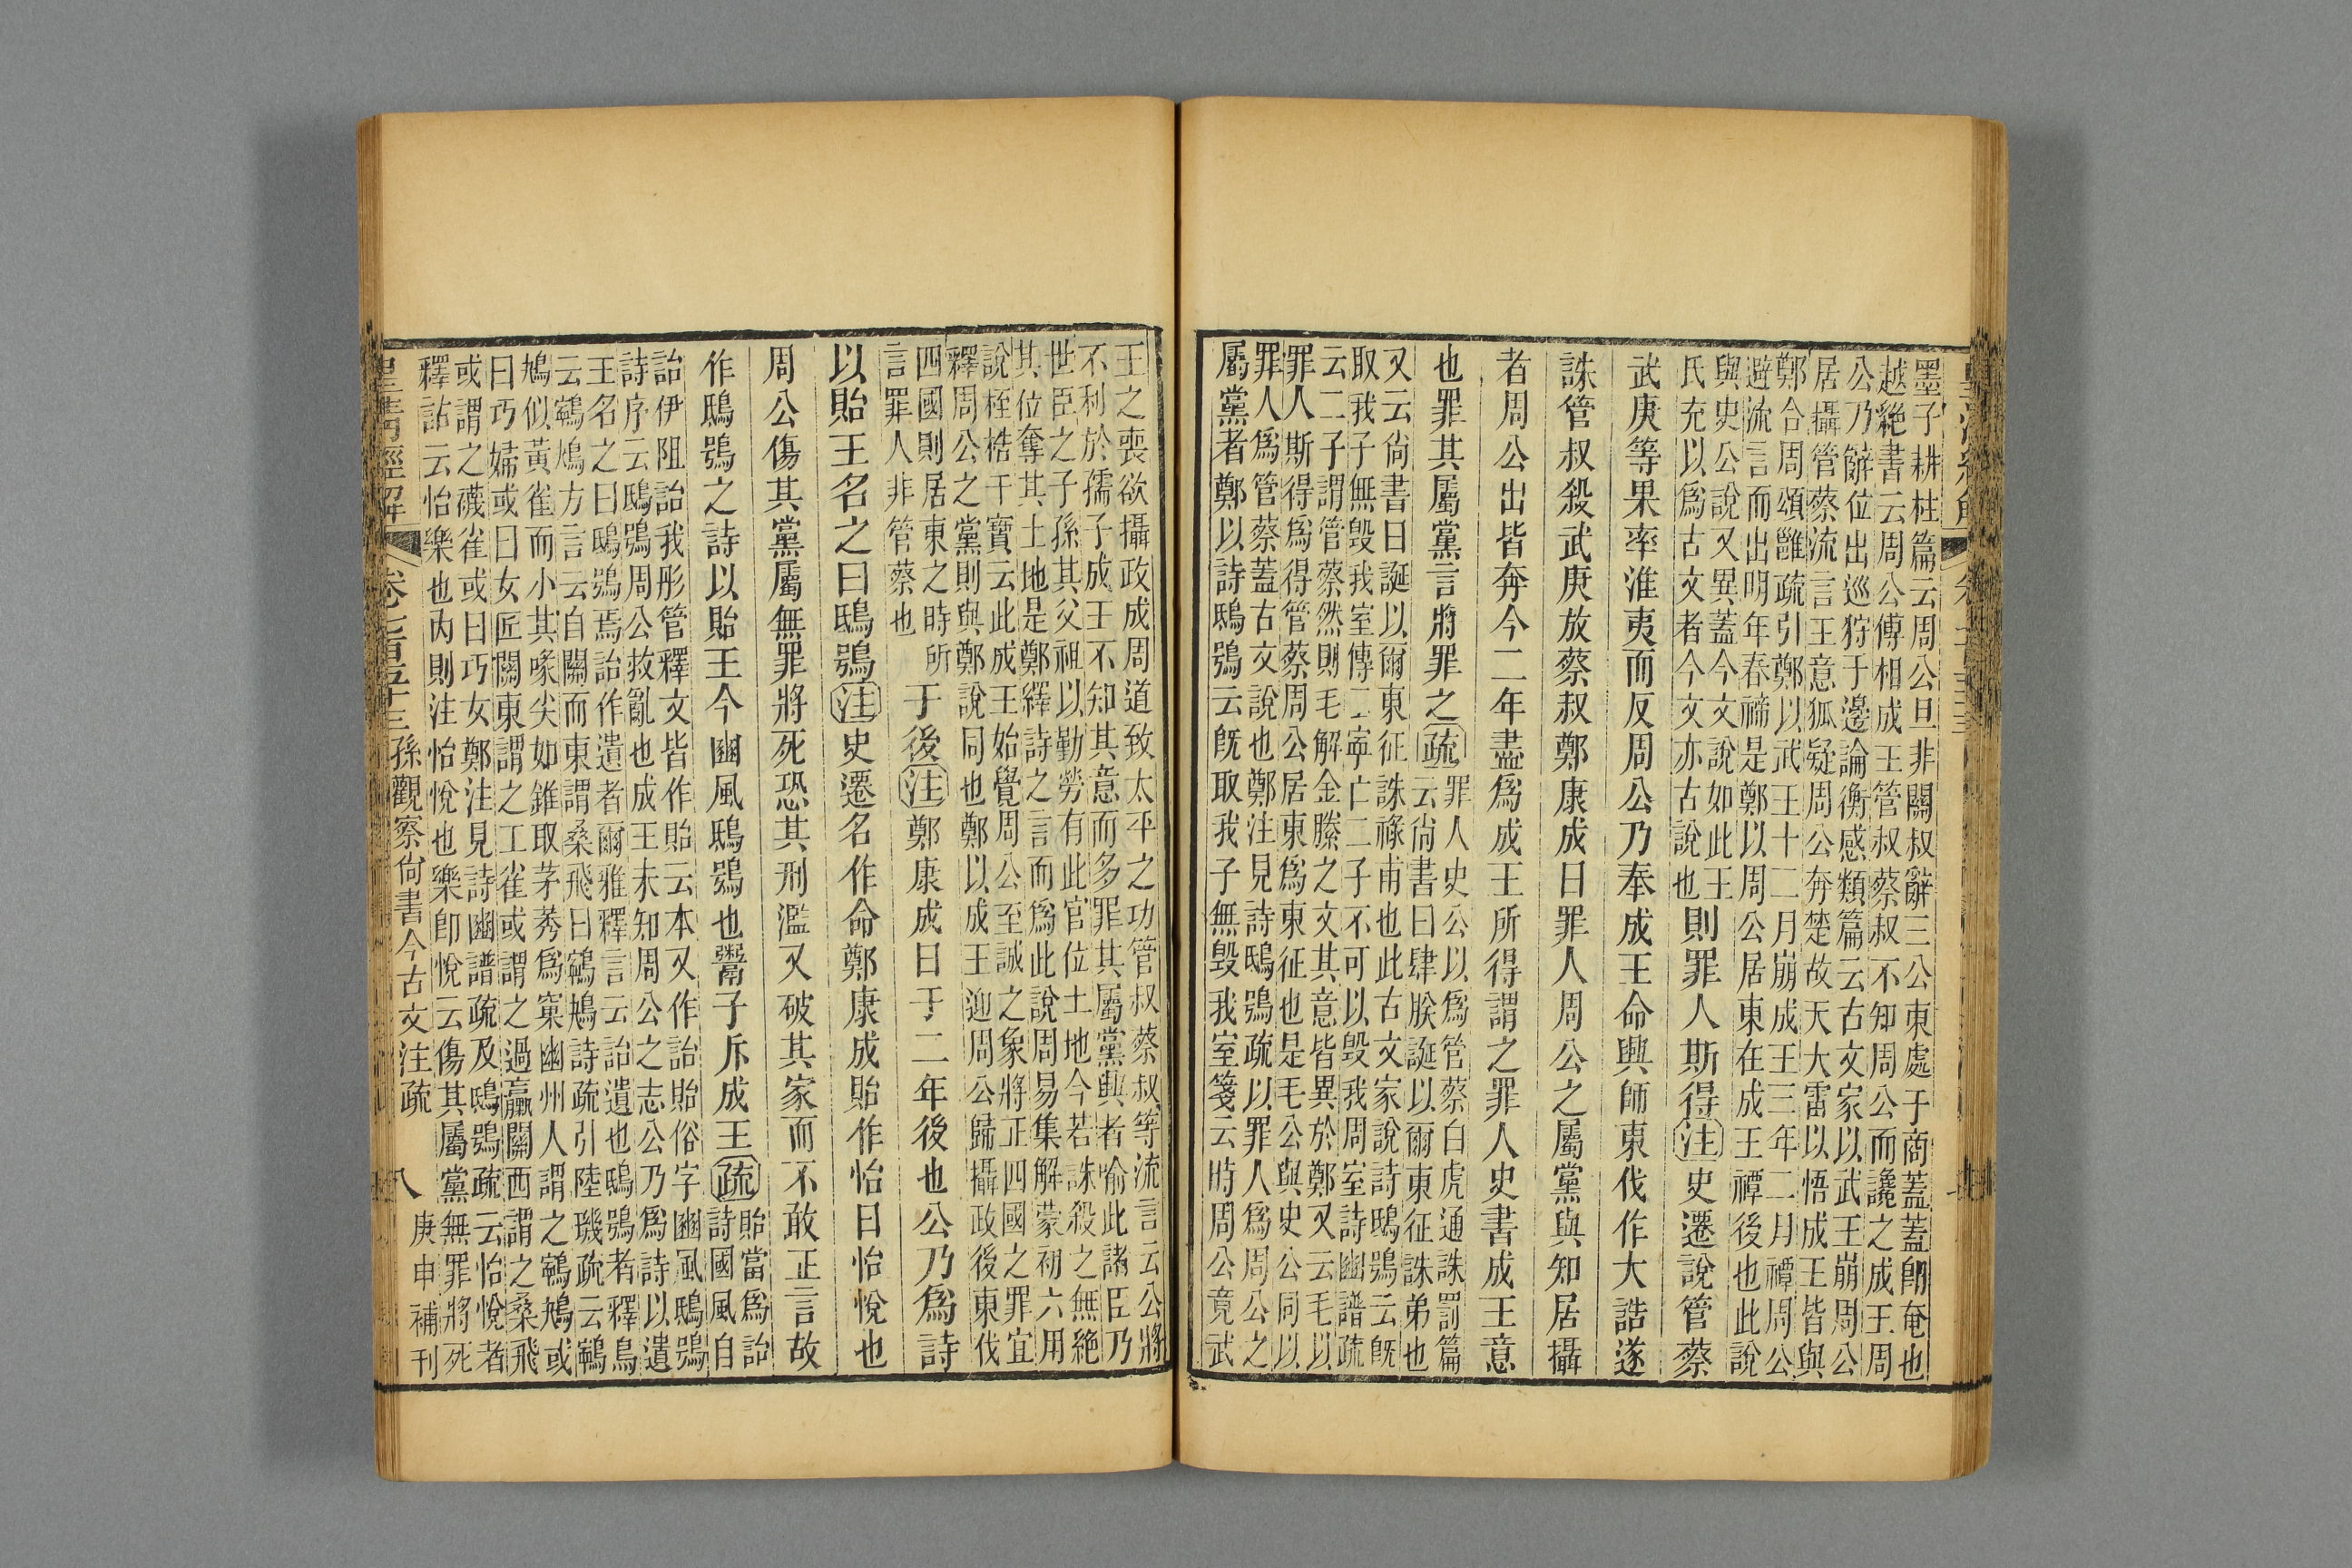 墨子耕柱篇云周公旦非關叔辭三公東處于商蓋蓋卽奄也
越絕書云周公傅相成王管叔蔡叔不知周公而讒之成王周
公乃辭位出巡狩于邊論衡感類篇云古文家以武王崩周公
居攝管蔡流言王意狐疑周公奔楚故天大雷以悟成王皆與
鄭合周頌雝疏引鄭以武王十二月崩成王三年二月禫周公
避流言而出明年春禘是鄭以周公居東在成王禫後也此說
與史公說又異蓋今文說如此王
氏充以爲古文者今文亦古說也
則罪人斯得注史遷說管蔡
武庚等果率淮夷而反周公乃奉成王命興師東伐作大誥遂
誅管叔殺武庚放蔡叔鄭康成曰罪人周公之屬黨與知居攝
者周公出皆奔今二年盡爲成王所得謂之罪人史書成王意
也罪其屬黨言將罪之疏
罪人史公以爲管蔡白虎通誅罰篇
云尙書曰肆朕誕以爾東征誅弟也
又云尙書曰誕以爾東征誅祿甫也此古文家說詩鴟鴞云旣
取我子無毀我室傳二寧亡二子不可以毀我周室詩豳譜疏
云二子謂管蔡然則毛解金縢之文其意皆異於鄭又云毛以
罪人斯得爲得管蔡周公居東爲東征也是毛公與史公同以
罪人爲管蔡蓋古文說也鄭注見詩鴟鴞疏以罪人爲周公之
屬黨者鄭以詩鴟鴞云旣取我子無毀我室箋云時周公竟武
王之喪欲攝政成周道致太平之功管叔蔡叔等流言云公將
不利於孺子成王不知其意而多罪其屬黨與者喻此諸臣乃
世臣之子孫其父祖以勤勞有此官位土地今若誅殺之無絕
其位奪其土地是鄭繹詩之言而爲此說周易集解蒙初六用
說桎梏干寶云此成王始覺周公至誠之象將正四國之罪宜
釋周公之黨則與鄭說同也鄭以成王迎周公歸攝政後東伐
四國則居東之時所
言罪人非管蔡也
于後注鄭康成曰于二年後也公乃爲詩
以貽王名之曰鴟鴞注史遷名作命鄭康成貽作怡曰怡悅也
周公傷其黨屬無罪將死恐其刑濫又破其家而不敢正言故
作鴟鴞之詩以貽王今豳風鴟鴞也鬻子斥成王疏
貽當爲詒
詩國風自
詒伊阻詒我彤管釋文皆作貽云本又作詒貽俗字豳風鴟鴞
詩序云鴟鴞周公救亂也成王未知周公之志公乃爲詩以遺
王名之曰鴟鴞焉詒作遺者爾雅釋言云詒遺也鴟鴞者釋鳥
云鸋鴂方言云自關而東謂桑飛曰鸋鴂詩疏引陸璣疏云鸋
鴂似黃雀而小其喙尖如錐取茅莠爲窠幽州人謂之鸋鴂或
曰巧婦或曰女匠關東謂之工雀或謂之過蠃關西謂之桑飛
或謂之襪雀或曰巧女鄭注見詩豳譜疏及鴟鴞疏云怡悅者
釋詁云怡樂也內則注怡悅也樂卽悅云傷其屬黨無罪將死
皇淸經解 卷七百五十三 孫觀察尙書今古文注疏 八 庚申補刊